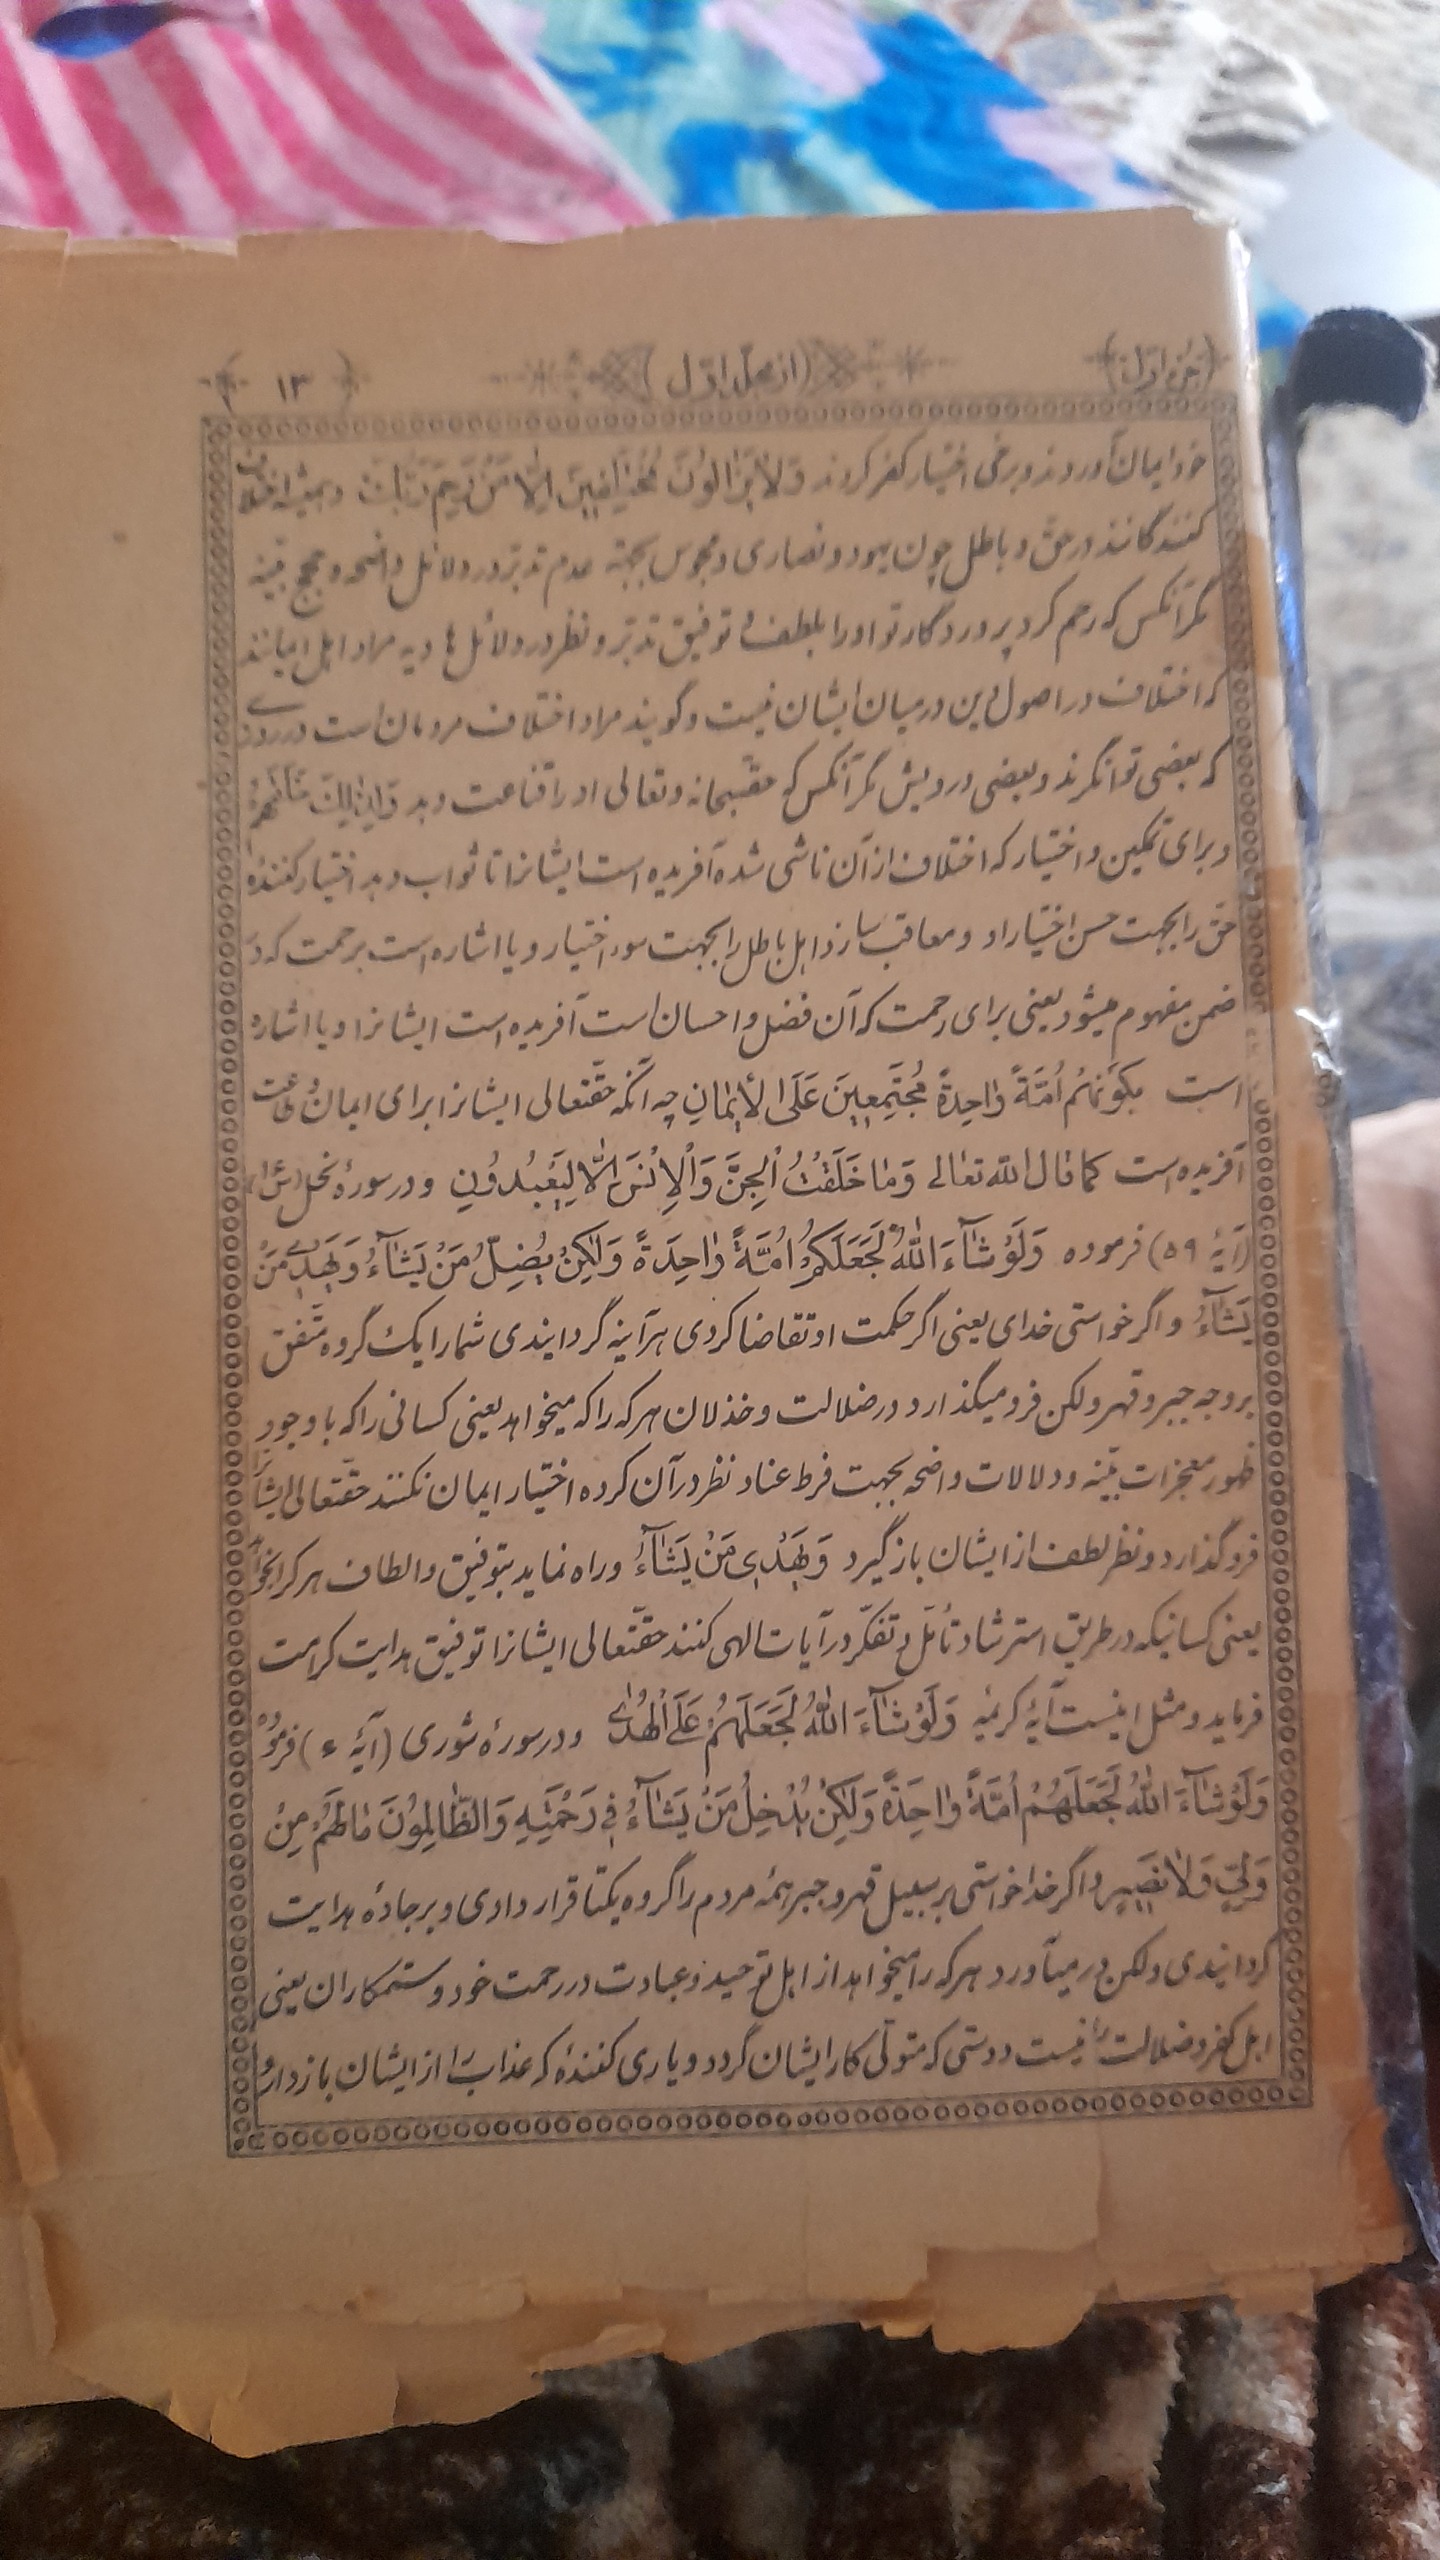 (جزء اول) (از مجلد اول) ۱۳
خود ایمان آوردند و برخی اختیار کفر کردند وَلٰا یَزٰالُونَ مُخْتَلِفِینَ اِلّٰا مَنْ رَحِمَ رَبُّكَ و همیشه اختلاف
کنندگانند در حق و باطل چون یهود و نصاری و مجوس بجهة عدم تدبّر در دلائل واضحه و حجج بیّنه
مگر آنکس که رحم کرد پروردگار تو او را بلطف و توفیق تدبّر و نظر در دلائل مراد اهل ایمانند
که اختلاف در اصول دین در میان ایشان نیست و گویند مراد اختلاف مردمان است در روزی
که بعضی توانگرند و بعضی درویش مگر آنکس که حقسبحانه و تعالی او را قناعت دهد وَلِذٰلِكَ خَلَقَهُمْ
و برای تمکین و اختیار که اختلاف از آن ناشی شده آفریده است ایشانرا تا ثواب دهد اختیار کنندهٔ
حقّ را بجهت حسن اختیار او و معاقب سازد اهل باطل را بجهت سوء اختیار و یا اشاره است برحمت که در
ضمن مفهوم میشود یعنی برای رحمت که آن فضل و احسان است آفریده است ایشانرا و یا اشاره
است بکَونُهُم اُمَّةً وٰاحِدةً مُجتَمِعِینَ عَلَی الْاِیمٰانِ چه آنکه حقّتعالی ایشانرا برای ایمان و طاعت
آفریده است کما قال اللّه تعالی وَمٰا خَلَقْتُ الْجِنَّ وَالْاِنْسَ اِلّٰا لِیَعْبُدُونِ و در سورهٔ نحل
(آیهٔ ۵۹) فرموده وَلَوْ شٰآءَ اللّٰهُ لَجَعَلَکُمْ اُمَّةً وٰاحِدَةً وَلٰکِنْ یُضِلُّ مَنْ یَشٰآءُ وَیَهْدِی مَنْ
یَشٰآءُ و اگر خواستی خدای یعنی اگر حکمت او تقاضا کردی هر آینه گردایندی شما را یک گروه متّفق
بر وجه جبر و قهر ولکن فرو میگذارد در ضلالت و خذلان هر که را که میخواهد یعنی کسانی را که با وجود
ظهور معجزات بیّنه و دلالات واضحه بجهت فرط عناد نظر در آن کرده اختیار ایمان نکنند حقّتعالی ایشانرا
فرو گذارد و نظر لطف از ایشان باز گیرد وَیَهْدِی مَنْ یَشٰآءُ و راه نماید بتوفیق و الطاف هر کرا خواهد
یعنی کسانیکه در طریق استرشاد تأمّل و تفکّر در آیات الهی کنند حقّتعالی ایشانرا توفیق هدایت کرامت
فرماید و مثل اینست آیهٔ کریمهٔ وَلَوْ شٰآءَ اللّٰهُ لَجَعَلَهُمْ عَلَی الْهُدٰی و در سورهٔ شوری (آیهٔ ۶) فرموده
وَلَوْ شٰآءَ اللّٰهُ لَجَعَلَهُمْ اُمَّةً وٰاحِدَةً وَلٰکِنْ یُدْخِلُ مَنْ یَشٰآءُ فِی رَحْمَتِهِ وَالظّٰالِمُونَ مٰا لَهُمْ مِنْ
وَلِیٍّ وَلٰا نَصِیرٍ و اگر خدا خواستی بر سبیل قهر و جبر همهٔ مردم را گروه یکتا قرار دادی و بر جادهٔ هدایت
گردایندی ولکن در میآورد هر که را میخواهد از اهل توحید و عبادت در رحمت خود و ستمکاران یعنی
اهل کفر و ضلالت را نیست دوستی که متولّی کار ایشان گردد و یاری کنندهٔ که عذاب را از ایشان باز دارد